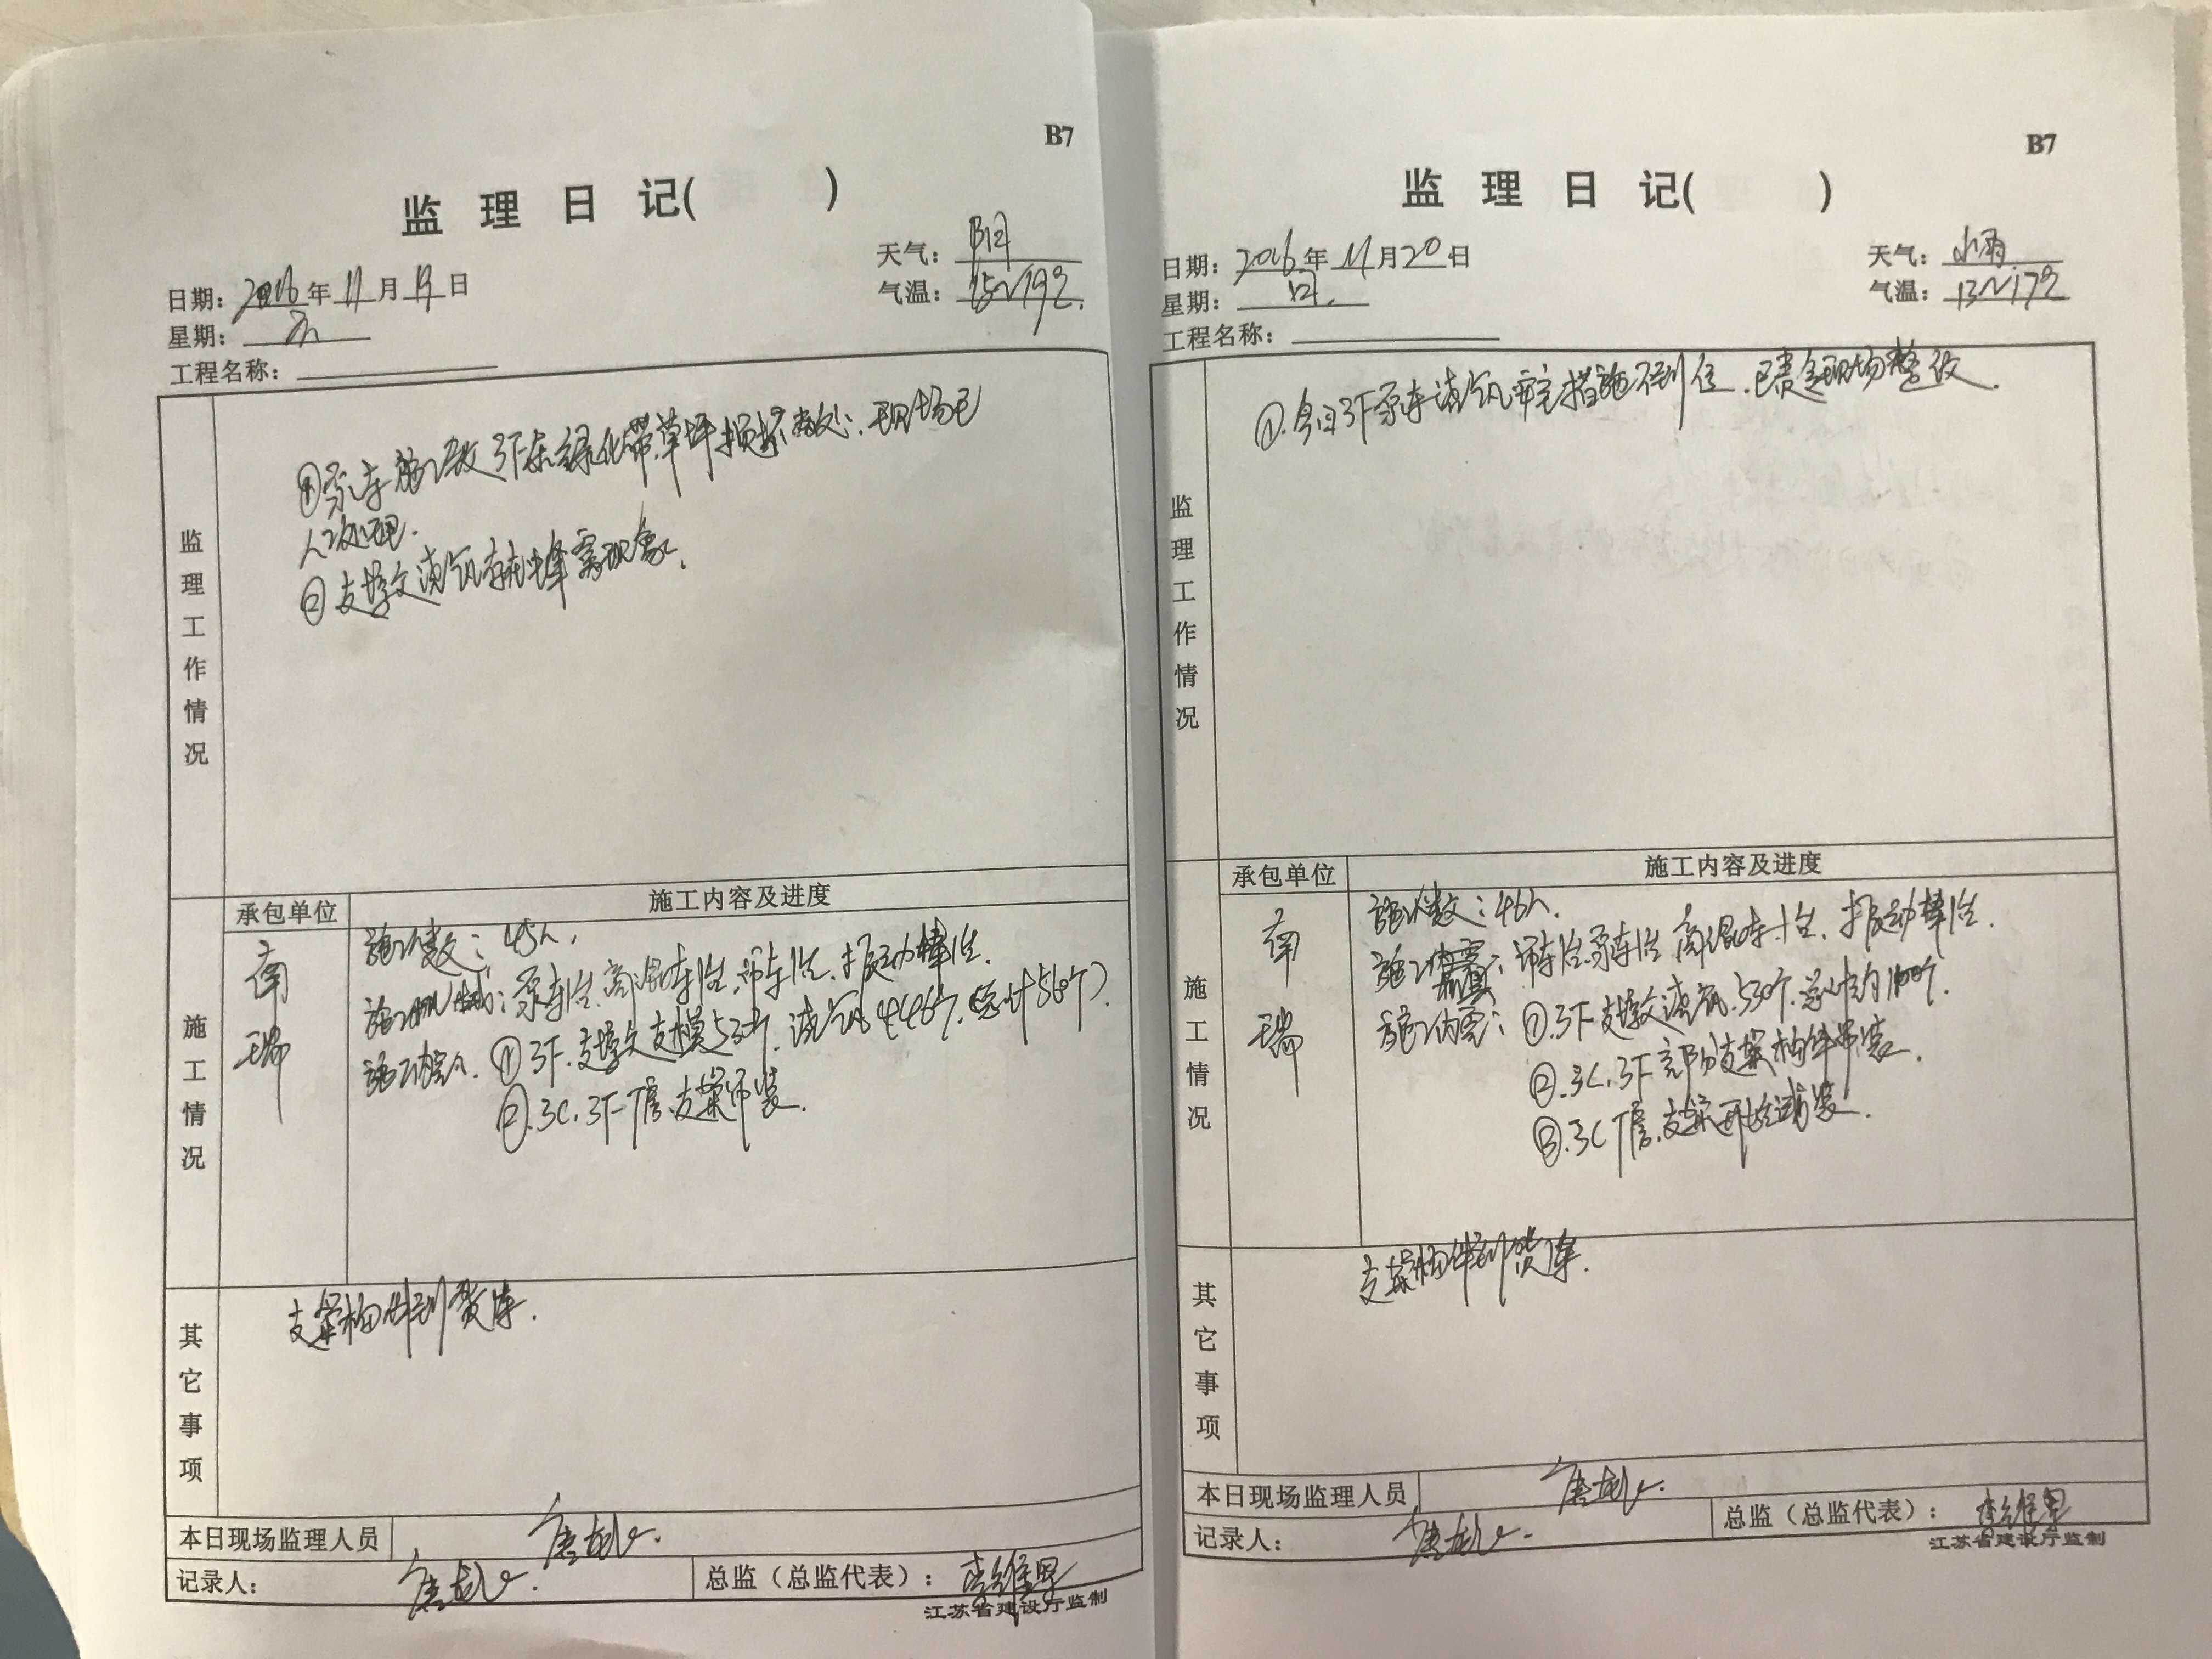 B7
监理日记( )
天气:阴
日期:2016年11月19日
气温:15~19℃.
星期:六
工程名称:
监理工作情况
①泵车施工致3F东绿化带草坪损坏数处,现场已
人工处理.
②支墩浇筑存在蜂窝现象.
施工情况
承包单位
施工内容及进度
南瑞
施工人数:45人,
施工机械:泵车1台,商混车1台,吊车1台,振动棒1台.
施工内容 ①3F.支墩支模530个,浇筑446个.(总计560个)
②.3C.3F下房支架吊装.
其它事项
支架构件到货车.
本日现场监理人员
记录人:
总监(总监代表):李维军
江苏省建设厅监制
B7
监理日记( )
日期:2016年11月20日
天气:小雨
星期:日.
气温:13~17℃
工程名称:
监理工作情况
①.今日3F泵车浇筑安全措施不到位.已责令现场整改.
施工情况
承包单位
施工内容及进度
南瑞
施工人数:46人.
施工机械:吊车1台.泵车1台 商混车1台,振动棒1台.
施工内容:①.3F支墩浇筑.530个.总计约1100个.
②.3C.3F部分支架构件吊装.
③.3C下房.支架开始试装.
其它事项
支架构件到货车.
本日现场监理人员
记录人:
总监(总监代表):李维军
江苏省建设厅监制